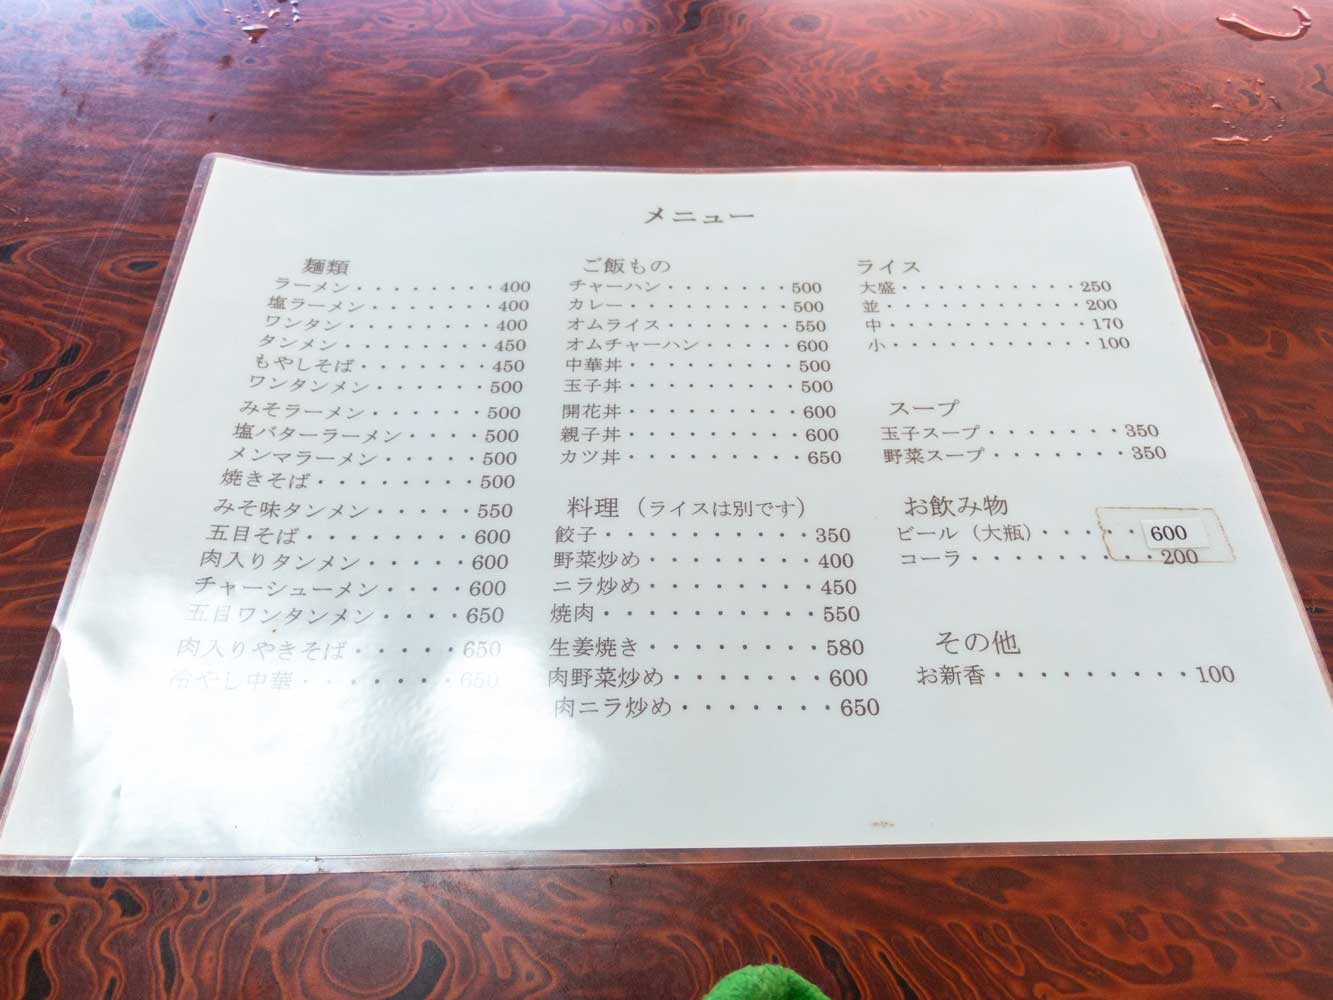 メニュー
麺類
ラーメン・・・・・・・・400
塩ラーメン・・・・・・・400
ワンタン・・・・・・・・400
タンメン・・・・・・・・450
もやしそば・・・・・・・450
ワンタンメン・・・・・・500
みそラーメン・・・・・・500
塩バターラーメン・・・・500
メンマラーメン・・・・・500
焼きそば・・・・・・・・500
みそ味タンメン・・・・・550
五目そば・・・・・・・・600
肉入りタンメン・・・・・600
チャーシューメン・・・・600
五目ワンタンメン・・・・650
肉入りやきそば・・・・・650
冷やし中華・・・・・・・650
ご飯もの
チャーハン・・・・・・・500
カレー・・・・・・・・・500
オムライス・・・・・・・550
オムチャーハン・・・・・600
中華丼・・・・・・・・・500
玉子丼・・・・・・・・・500
開花丼・・・・・・・・・600
親子丼・・・・・・・・・600
カツ丼・・・・・・・・・650
料理（ライスは別です）
餃子・・・・・・・・・・350
野菜炒め・・・・・・・・400
ニラ炒め・・・・・・・・450
焼肉・・・・・・・・・・550
生姜焼き・・・・・・・・580
肉野菜炒め・・・・・・・600
肉ニラ炒め・・・・・・・650
ライス
大盛・・・・・・・・・・250
並・・・・・・・・・・・200
中・・・・・・・・・・・170
小・・・・・・・・・・・100
スープ
玉子スープ・・・・・・・350
野菜スープ・・・・・・・350
お飲み物
ビール（大瓶）・・・・・600
コーラ・・・・・・・・・200
その他
お新香・・・・・・・・・100